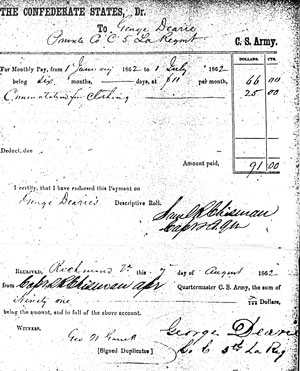 THE CONFEDERATE STATES, Dr.
To George Dearie
Private Co C 5 La Regmt C. S. Army.
DOLLARS. CTS.
For Monthly Pay, from 1 January 1862 to 1 July 1862
being six months, days, at $11 per month, 66 00
Commutation for Clothing 25 00
Deduct, due
Amount paid, 91 00
I certify, that I have endorsed this Payment on
George Dearie's Descriptive Roll.
Capt & AQM
RECEIVED, Richmond Va this 7 day of August 1862
from Capt Quartermaster C. S. Army, the sum of
Ninety one Dollars,
being the amount, and in full of the above account.
WITNESS,
Geo
George Dearie
[Signed Duplicates] Co C 5th La Reg